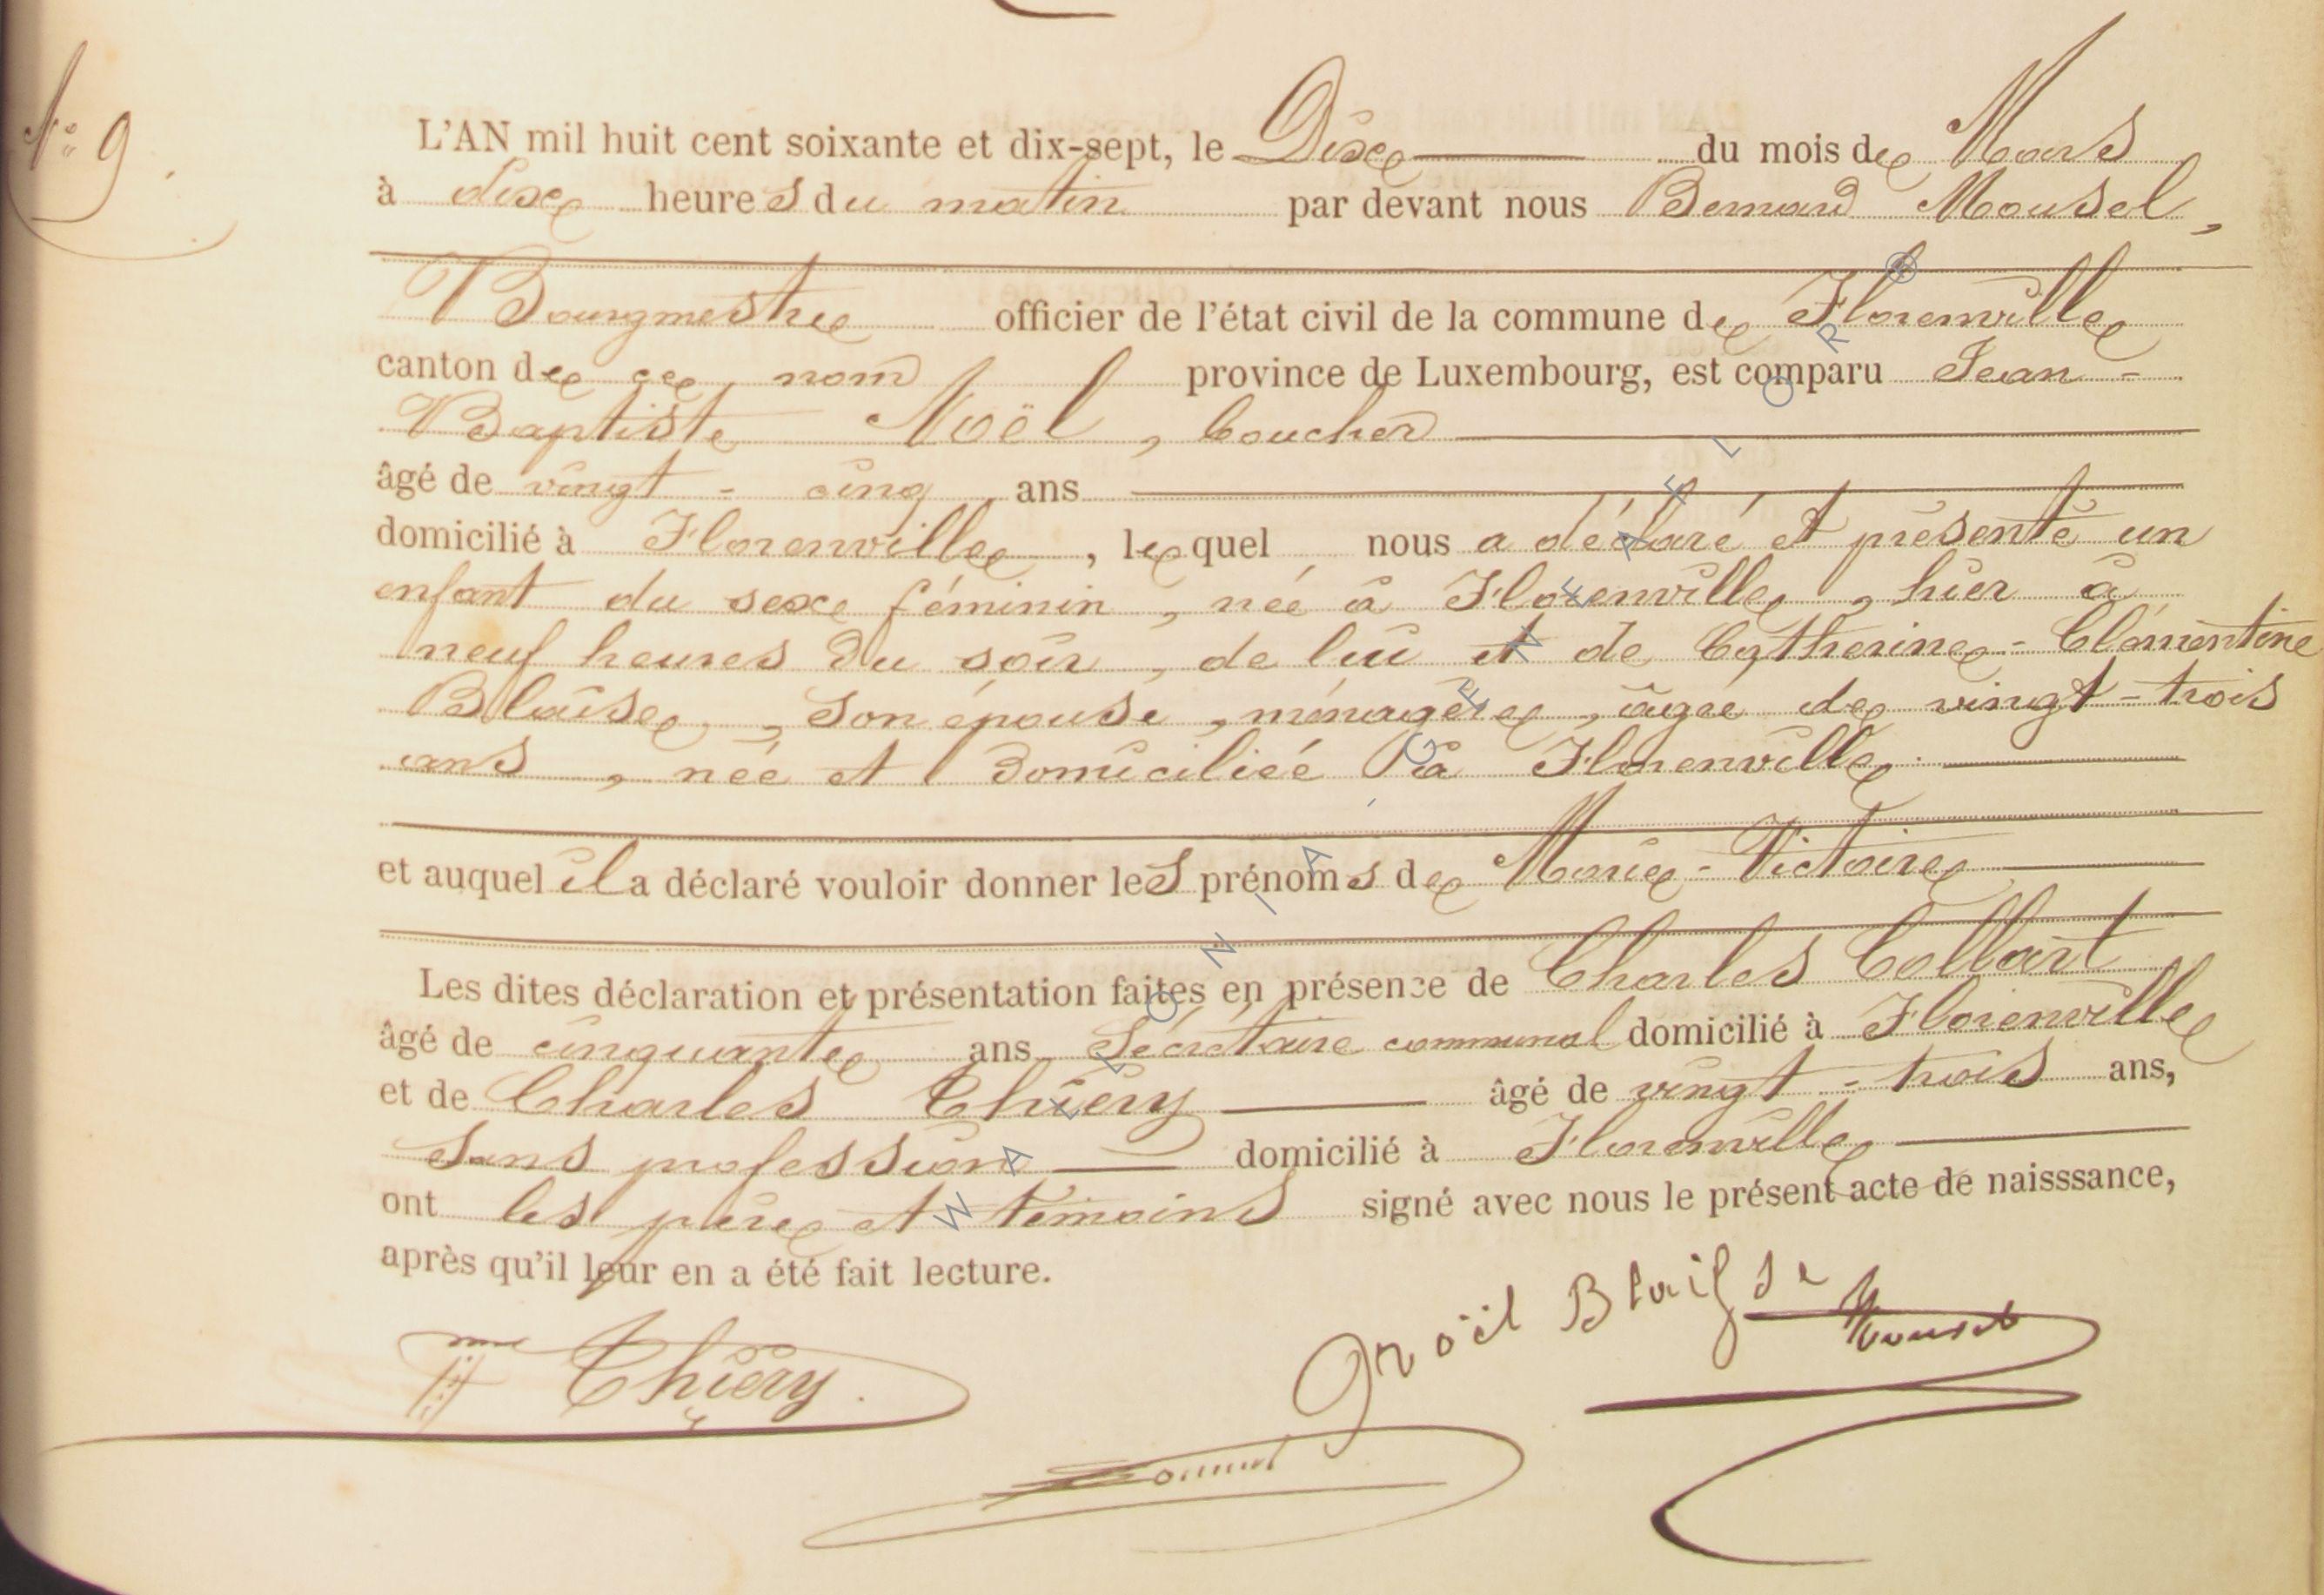 N° 9.
L'AN mil huit cent soixante et dix-sept, le Dix du mois de Mars
à dix heures du matin par devant nous Bernard Mousel,
Bourgmestre officier de l'état civil de la commune de Florenville
canton de ce nom province de Luxembourg, est comparu Jean-
Baptiste Noël, boucher
âgé de vingt-cinq ans
domicilié à Florenville, lequel nous a déclaré et présenté un
enfant du sexe féminin, née à Florenville, hier à
neuf heures du soir, de lui et de Catherine-Clémentine
Blaise, son épouse, ménagère, âgée de vingt-trois
ans, née et domiciliée à Florenville.
et auquel il a déclaré vouloir donner les prénoms de Marie-Victoire
Les dites déclaration et présentation faites en présence de Charles Collart
âgé de cinquante ans, Secrétaire communal domicilié à Florenville
et de Charles Thiery âgé de vingt-trois ans,
sans profession domicilié à Florenville
ont les père et témoins signé avec nous le présent acte de naisssance,
après qu'il leur en a été fait lecture.
Noël Blaisse
Mousel
Thiery.
WALLONIA, GENEAFLOR®